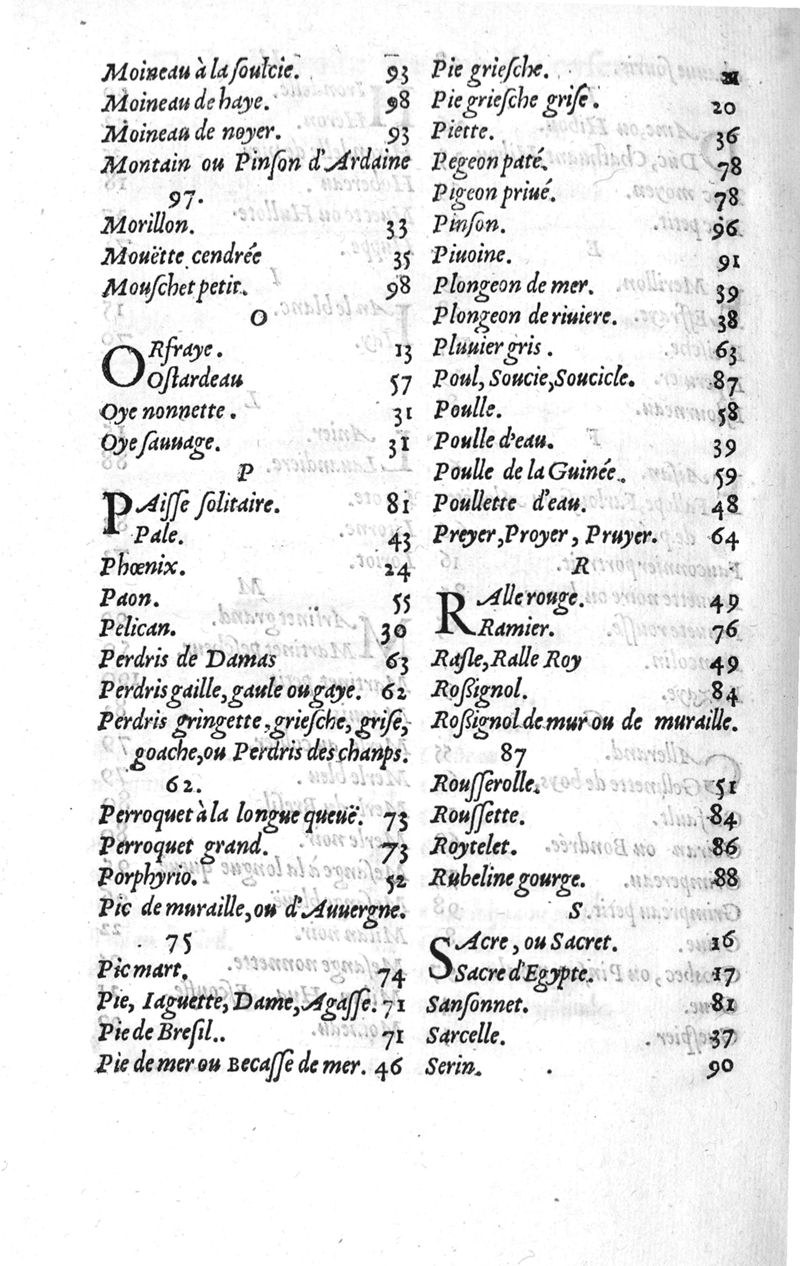 Moineau à la ſoulcie. 93
Moineau de haye. 98
Moineau de noyer. 93
Montain ou Pinſon d'Ardaine
97.
Morillon. 33
Mouëtte cendrée 35
Mouſchet petit. 98
O
ORfraye. 13
Oſtardeau 57
Oye nonnette. 31
Oye ſauuage. 31
P
PAiſſe ſolitaire. 81
Pale. 43
Phœnix. 24
Paon. 55
Pelican. 30
Perdris de Damas 63
Perdris gaille, gaule ou gaye. 62
Perdris gringette, grieſche, griſe,
goache, ou Perdris des chanps.
62.
Perroquet à la longue queuë. 73
Perroquet grand. 73
Porphyrio. 52
Pic de muraille, ou d'Auuergne.
75
Picmart. 74
Pie, Iaguette, Dame, Agaſſe. 71
Pie de Breſil.. 71
Pie de mer ou Becaſſe de mer. 46
Pie grieſche.
Pie grieſche griſe. 20
Piette. 36
Pegeon paté. 78
Pigeon priué. 78
Pinſon. 96
Piuoine. 91
Plongeon de mer. 39
Plongeon de riuiere. 38
Pluuier gris. 63
Poul, Soucie, Soucicle. 87
Poulle. 58
Poulle d'eau. 39
Poulle de la Guinée. 59
Poullette d'eau. 48
Preyer, Proyer, Pruyer. 64
R
RAlle rouge. 49
Ramier. 76
Raſle, Ralle Roy 49
Roßignol. 84
Roßignol de mur ou de muraille.
87
Rouſſerolle. 51
Rouſſette. 84
Roytelet. 86
Rubeline gourge. 88
S
SAcre, ou Sacret. 16
Sacre d'Egypte. 17
Sanſonnet. 81
Sarcelle. 37
Serin. 90